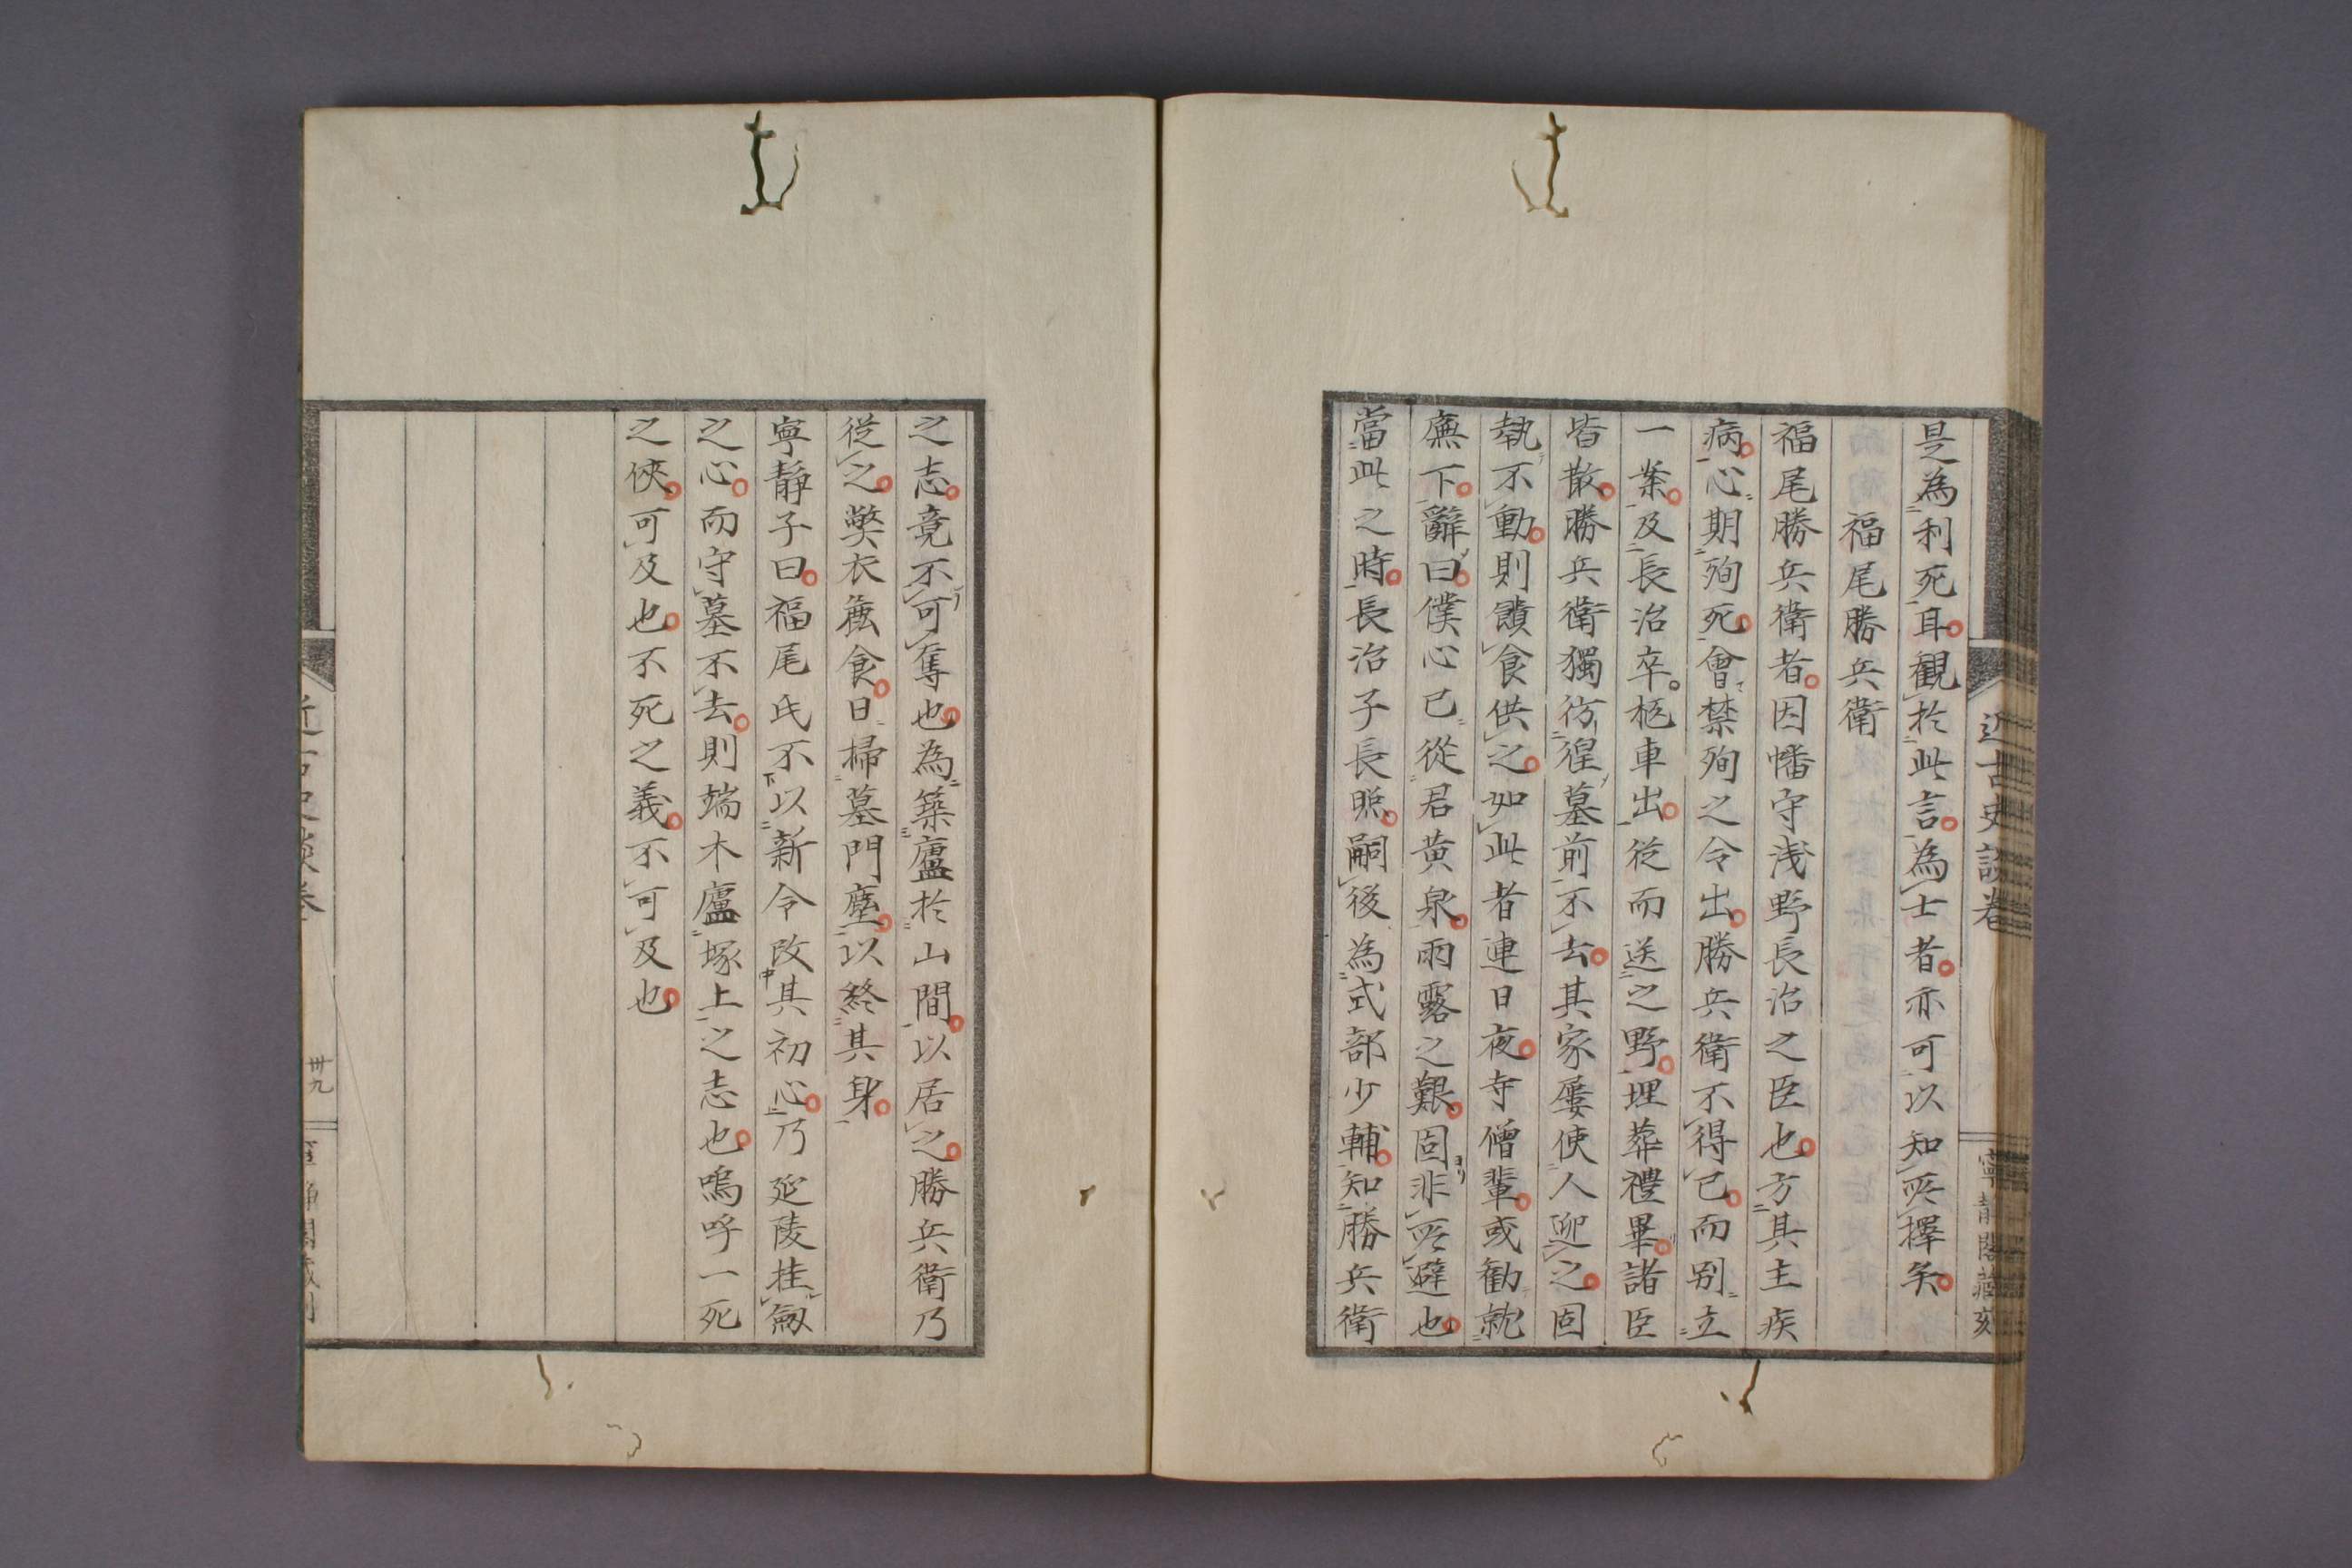 近古史談卷
寧靜閣藏刻
是為利死耳觀於此言為士者亦可以知所擇矣
福尾勝兵衛
福尾勝兵衛者因幡守浅野長治之臣也方其主疾
病心期殉死會禁殉之令出勝兵衛不得已而别立
一案及長治卒柩車出従而送之野埋葬禮畢諸臣
皆散勝兵衛獨彷徨墓前不去其家屡使人迎之固
執不動則饋食供之如此者連日夜寺僧輩或勧就
廡下辭曰僕心已從君黄泉雨露之艱固非所避也
當此之時長治子長照嗣後為式部少輔知勝兵衛
之志竟不可奪也為築廬於山間以居之勝兵衛乃
従之獘衣麁食日掃墓門塵以終其身
寧靜子曰福尾氏不以新令改其初心乃延陵挂劔
之心而守墓不去則端木廬塚上之志也嗚呼一死
之俠可及也不死之義不可及也
近古史談卷
卅九